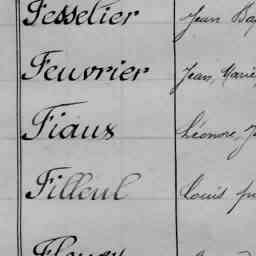 Fesselier Jean Ba
Feuvrier Jean, Marie,
Fiaux Léonore, J
Filleul Louis
Fleury